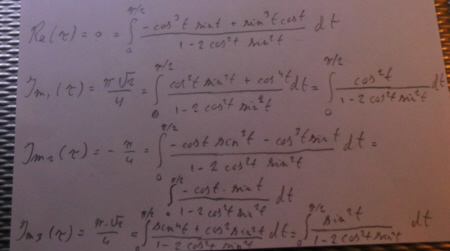 Re(τ) = 0 = ∫₀^{π/2} (-cos³t sint + sin³t cost)/(1-2cos²t sin²t) dt
Im₁(τ) = π√2/4 = ∫₀^{π/2} (cos²t sin²t + cos⁴t)/(1-2cos²t sin²t) dt = ∫₀^{π/2} cos²t/(1-2cos²t sin²t) dt
Im₂(τ) = -π/4 = ∫₀^{π/2} (-cost sin³t - cos³t sint)/(1-2cos²t sin²t) dt =
∫₀^{π/2} (-cost·sint)/(1-2cos²t sin²t) dt
Im₃(τ) = π·√2/4 = ∫₀^{π/2} (sin⁴t + cos²t sin²t)/(1-2cos²t sin²t) dt = ∫₀^{π/2} sin²t/(1-2cos²t sin²t) dt